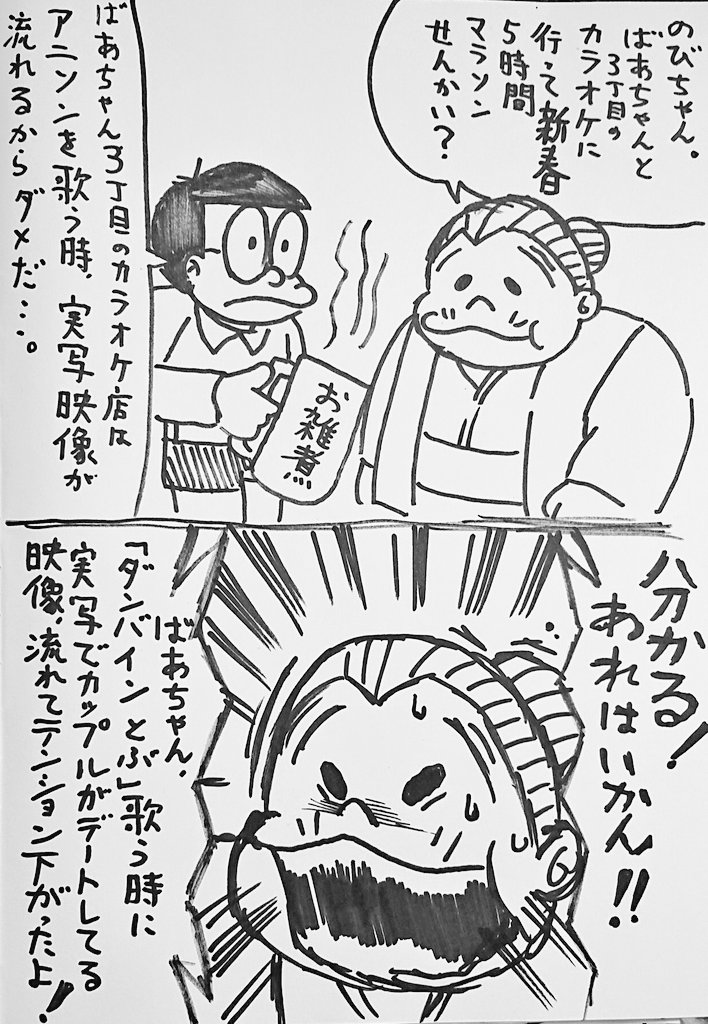 のびちゃん。
ばあちゃんと
3丁目の
カラオケに
行って新春
5時間
マラソン
せんかい?
お雑煮
ばあちゃん3丁目のカラオケ店は
アニソンを歌う時、実写映像が
流れるからダメだ…。
分かる!
あれはいかん!!
ばあちゃん、
「ダンバインとぶ」歌う時に
実写でカップルがデートしてる
映像、流れてテンション下がったよ!